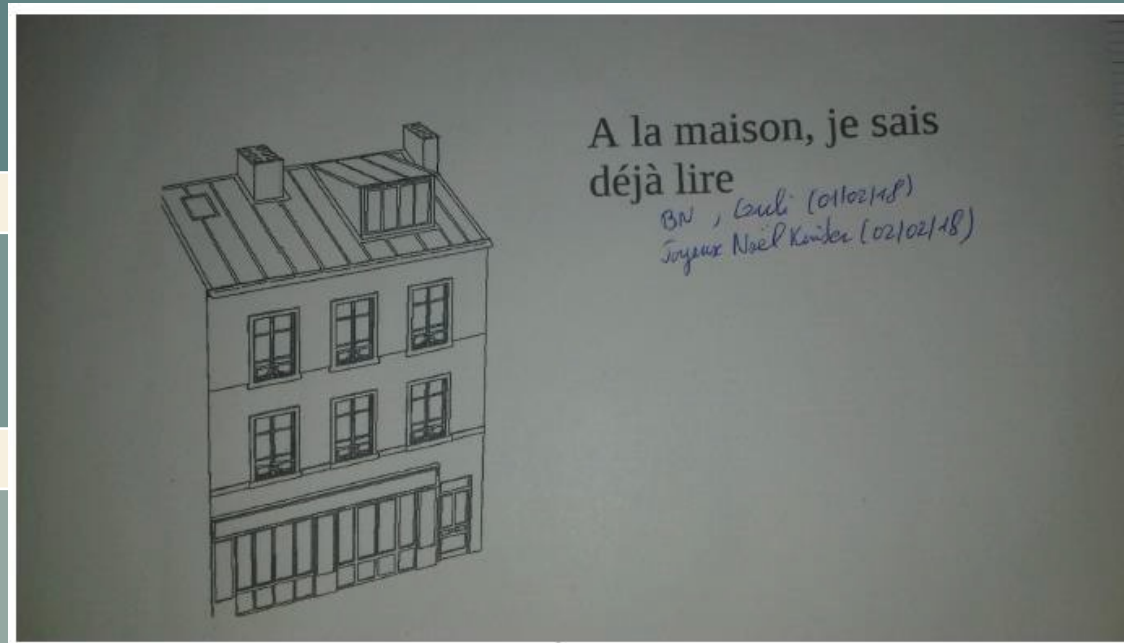 A la maison, je sais
déjà lire
BN, (01/02/18)
Joyeux Noël Kinder (02/02/18)